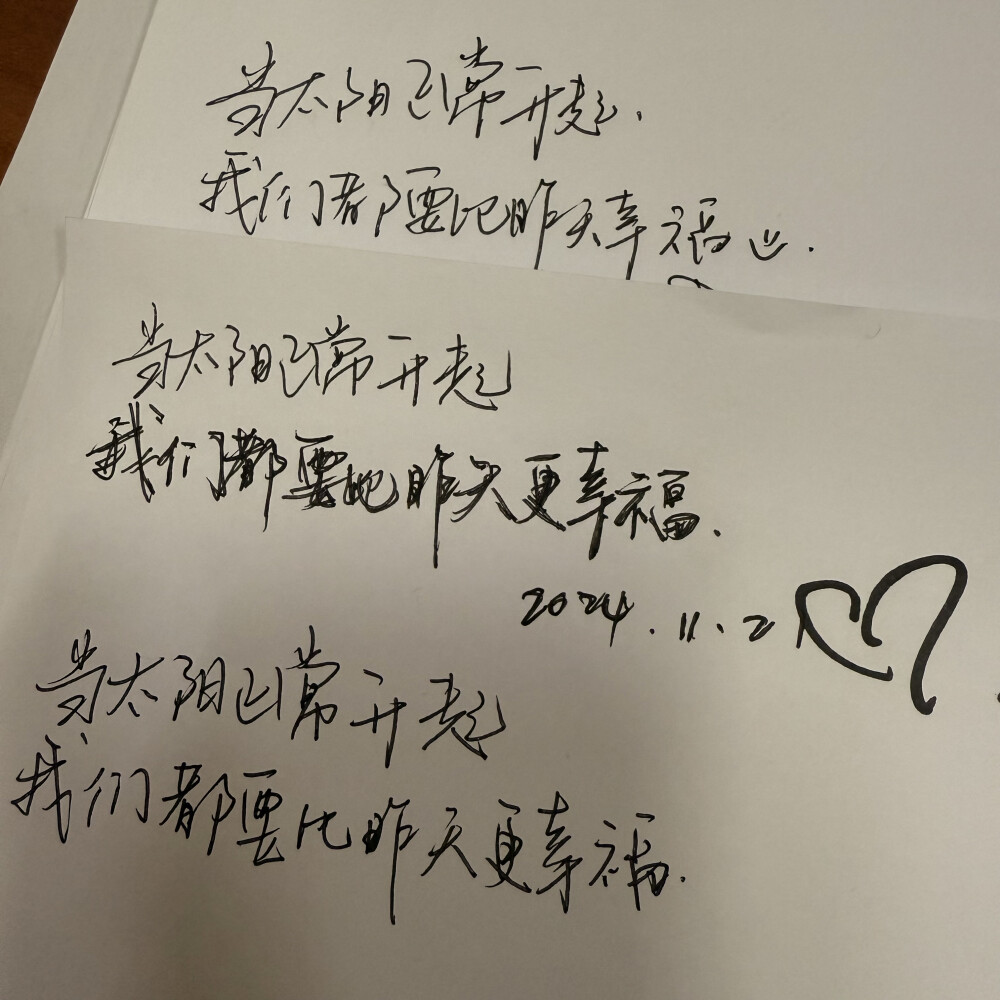 当太阳正常升起.
我们都要比昨天幸福
当太阳正常升起
我们都要比昨天更幸福.
2024.11.2
当太阳正常升起
我们都要比昨天更幸福.